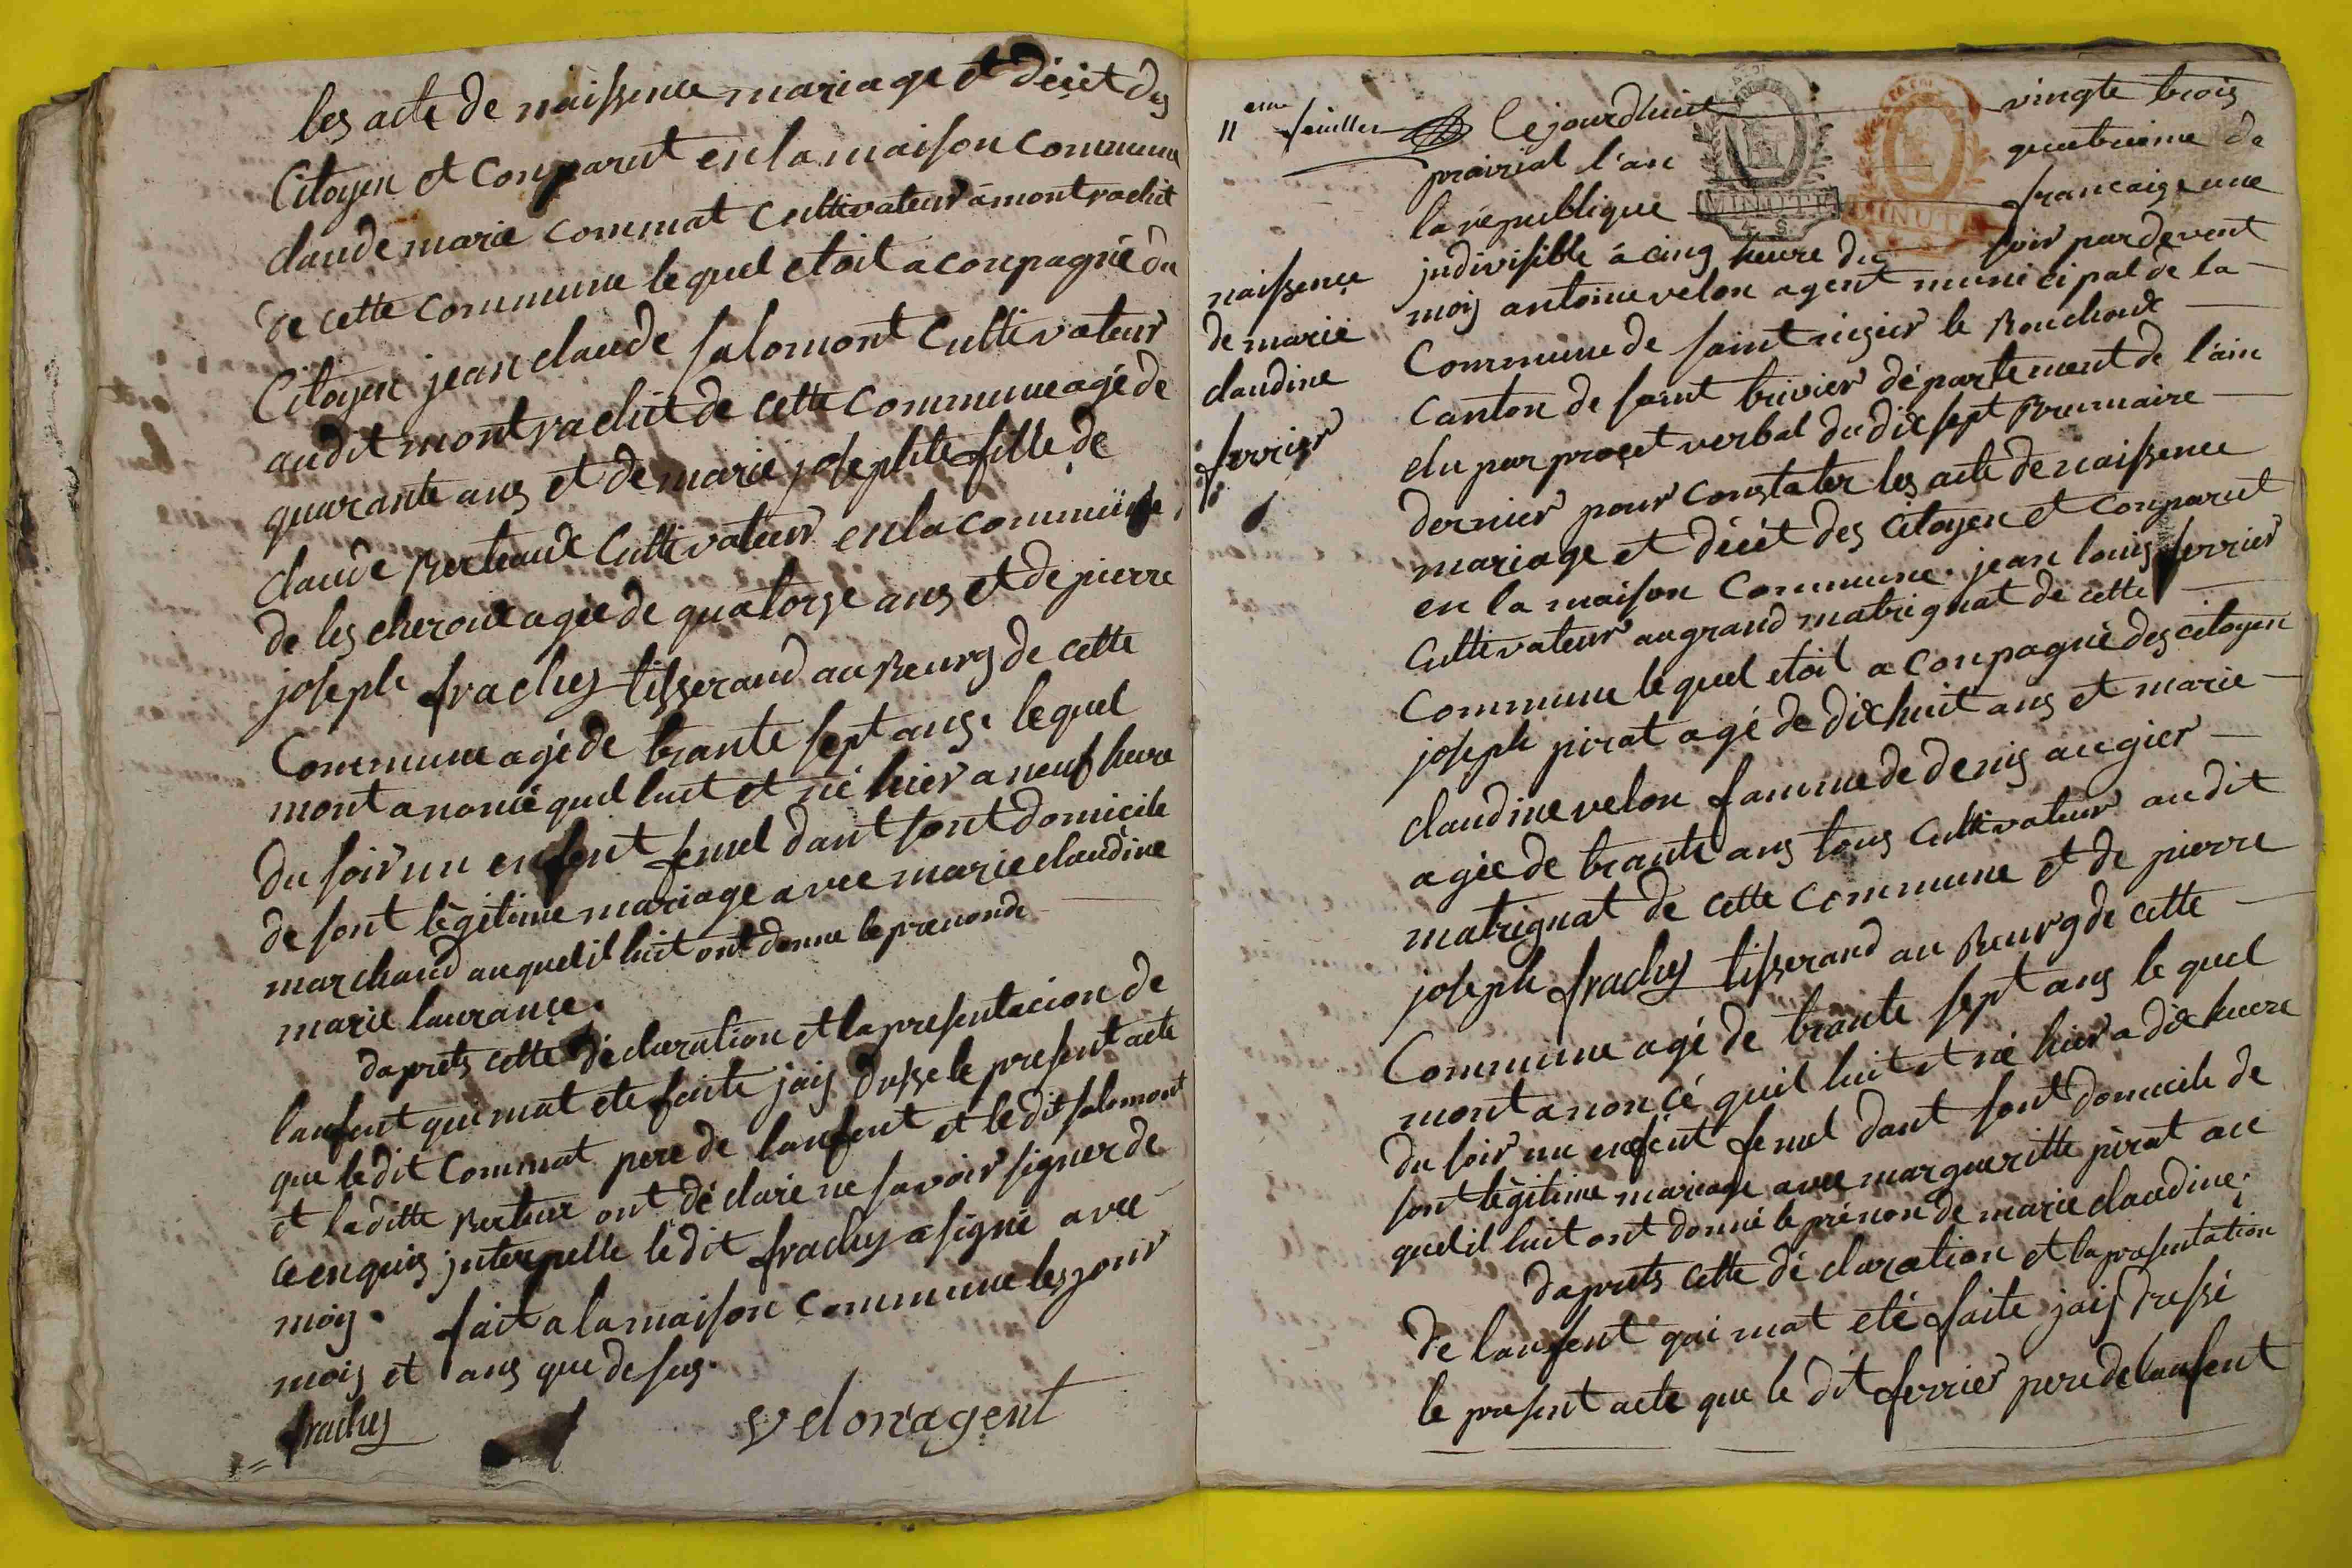 les acte de naissence mariage et décèt des
Citoyen et Comparut en la maison Commune
claude marie commat Cultivateur a montrachit
de cette Commune le quel etoit a compagné du
Citoyen jean claude salomont Cultivateur
audit montrachit de cette Commune agé de
quarante ans et de marie josephte fille de
claude Berteaud Cultivateur en la commune
de les cheroux agée de quatorze ans et de pierre
joseph frachy tisserand au Bourg de cette
Commune agé de trante sept ans. le quel
mont anoncé quel luit et né hier a neuf heure
du soir un enfent femel dant sont domicile
de sont légitime mariage avec marie claudine
marchand auquel il luit ont donne le prenonde
marie laurance.
daprets cette déclaration et la presentacion de
lanfent qui mat ete faite jais dresse le present acte
que le dit Commat pere de lanfent et le dit salomont
et la ditte Berteux ont déclaré ne savoir signer de
ce enquis jnterpelle le dit frachy a signé avec
mois. fait a la maison Commune les jour
mois et ans que desus.
frachy
velon agent
11eme feuillet
naissence
de marie
claudine
ferrier
Cejourdhuit vingte trois
prairial l'an quatrieme de
la republique francaise une
MINUTE
MINUTE
jndivisible à cinq heure du soir pardevent
mois antoine velon agent municipal de la
Commune de saint nisier le Bouchoux
Canton de saint trivier département de l'ain
elu par procet verbal du dix sept Brumaire
dernier pour constater les acte de naissence
mariage et décèt des Citoyen et comparut
en la maison Commune. jean louis ferrier
Cultivateur au grand matrignat de cette
Commune le quel etoit a compagné des citoyen
joseph pirat agé de dix huit ans et marie
claudine velon famme de denis augier
agée de trante ans tous Cultivateur audit
matrignat de cette Commune et de pierre
joseph frachy tisserand au Bourg de cette
Commune agé de trante sept ans le quel
mont anoncé quil luit et né hier a dix heure
du soir un enfent femel dant sont domicile de
sont légitime mariage avec margueritte pirat au
quel il luit ont donné le prénon de marie claudine.
daprets cette déclaration et la presentation
de lanfent qui mat eté faite jais dressé
le present acte que le dit ferrier pere de lanfent